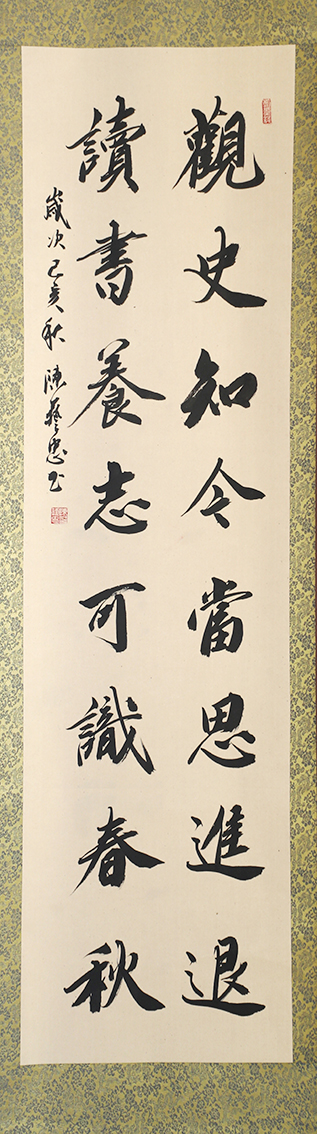 觀史知今當思進退
讀書養志可識春秋
歲次己亥秋 陳藝忠書